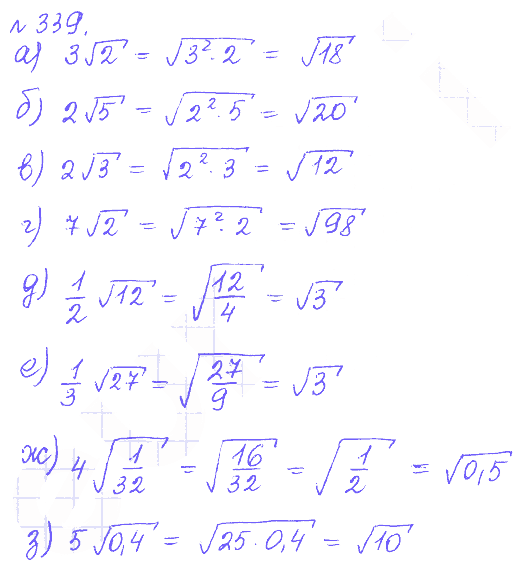 № 339.
а) 3√2 = √(3²·2) = √18
б) 2√5 = √(2²·5) = √20
в) 2√3 = √(2²·3) = √12
г) 7√2 = √(7²·2) = √98
д) 1/2 √12 = √(12/4) = √3
е) 1/3 √27 = √(27/9) = √3
ж) 4√(1/32) = √(16/32) = √(1/2) = √0,5
з) 5√0,4 = √(25·0,4) = √10